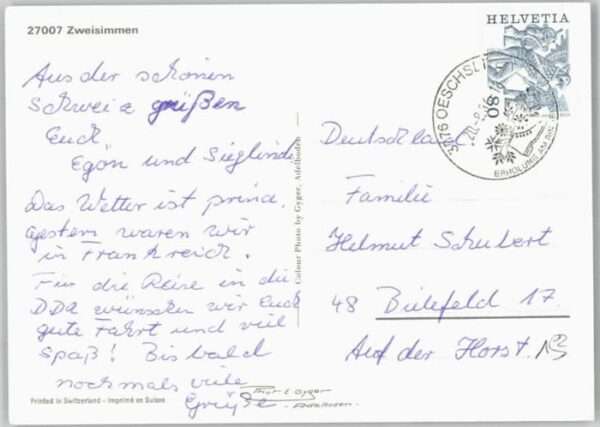 27007 Zweisimmen
Aus der schönen
Schweiz grüßen
Euch
Egon und Sieglinde
Das Wetter ist prima.
gestern waren wir
in Frankreich.
Für die Reise in die
DDR wünschen wir Euch
gute Fahrt und viel
Spaß! Bis bald
nochmals viele
Grüße
Printed in Switzerland - Imprimé en Suisse
Colour Photo by Gyger, Adelboden
HELVETIA
80
OESCHS
ERHOLUNG AM
Deutschland
Familie
Helmut Schubert
48 Bielefeld 17.
Auf der Horst.
Gyger
Adelboden